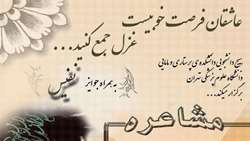 عاشقان فرصت خوبیست
غزل جمع کنید...
بسیج دانشجویی دانشکده‌ی پرستاری و مامایی
دانشگاه علوم پزشکی تهران
برگزار میکند...
به همراه جوایز
نفیس
مشاعره